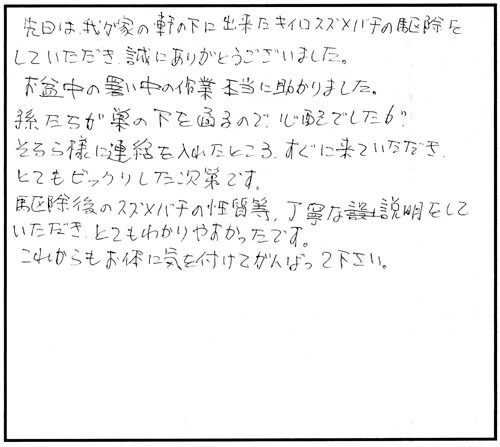 先日は、我が家の軒の下に出来たキイロスズメバチの駆除を
していただき、誠にありがとうございました。
お盆中の暑い中の作業 本当に助かりました。
孫たちが巣の下を通るので、心配でしたが
そちら様に連絡を入れたところ、すぐに来ていただき、
とてもビックリした次第です。
駆除後のスズメバチの性質等、丁寧な説明をして
いただき、とてもわかりやすかったです。
これからもお体に気を付けてがんばって下さい。